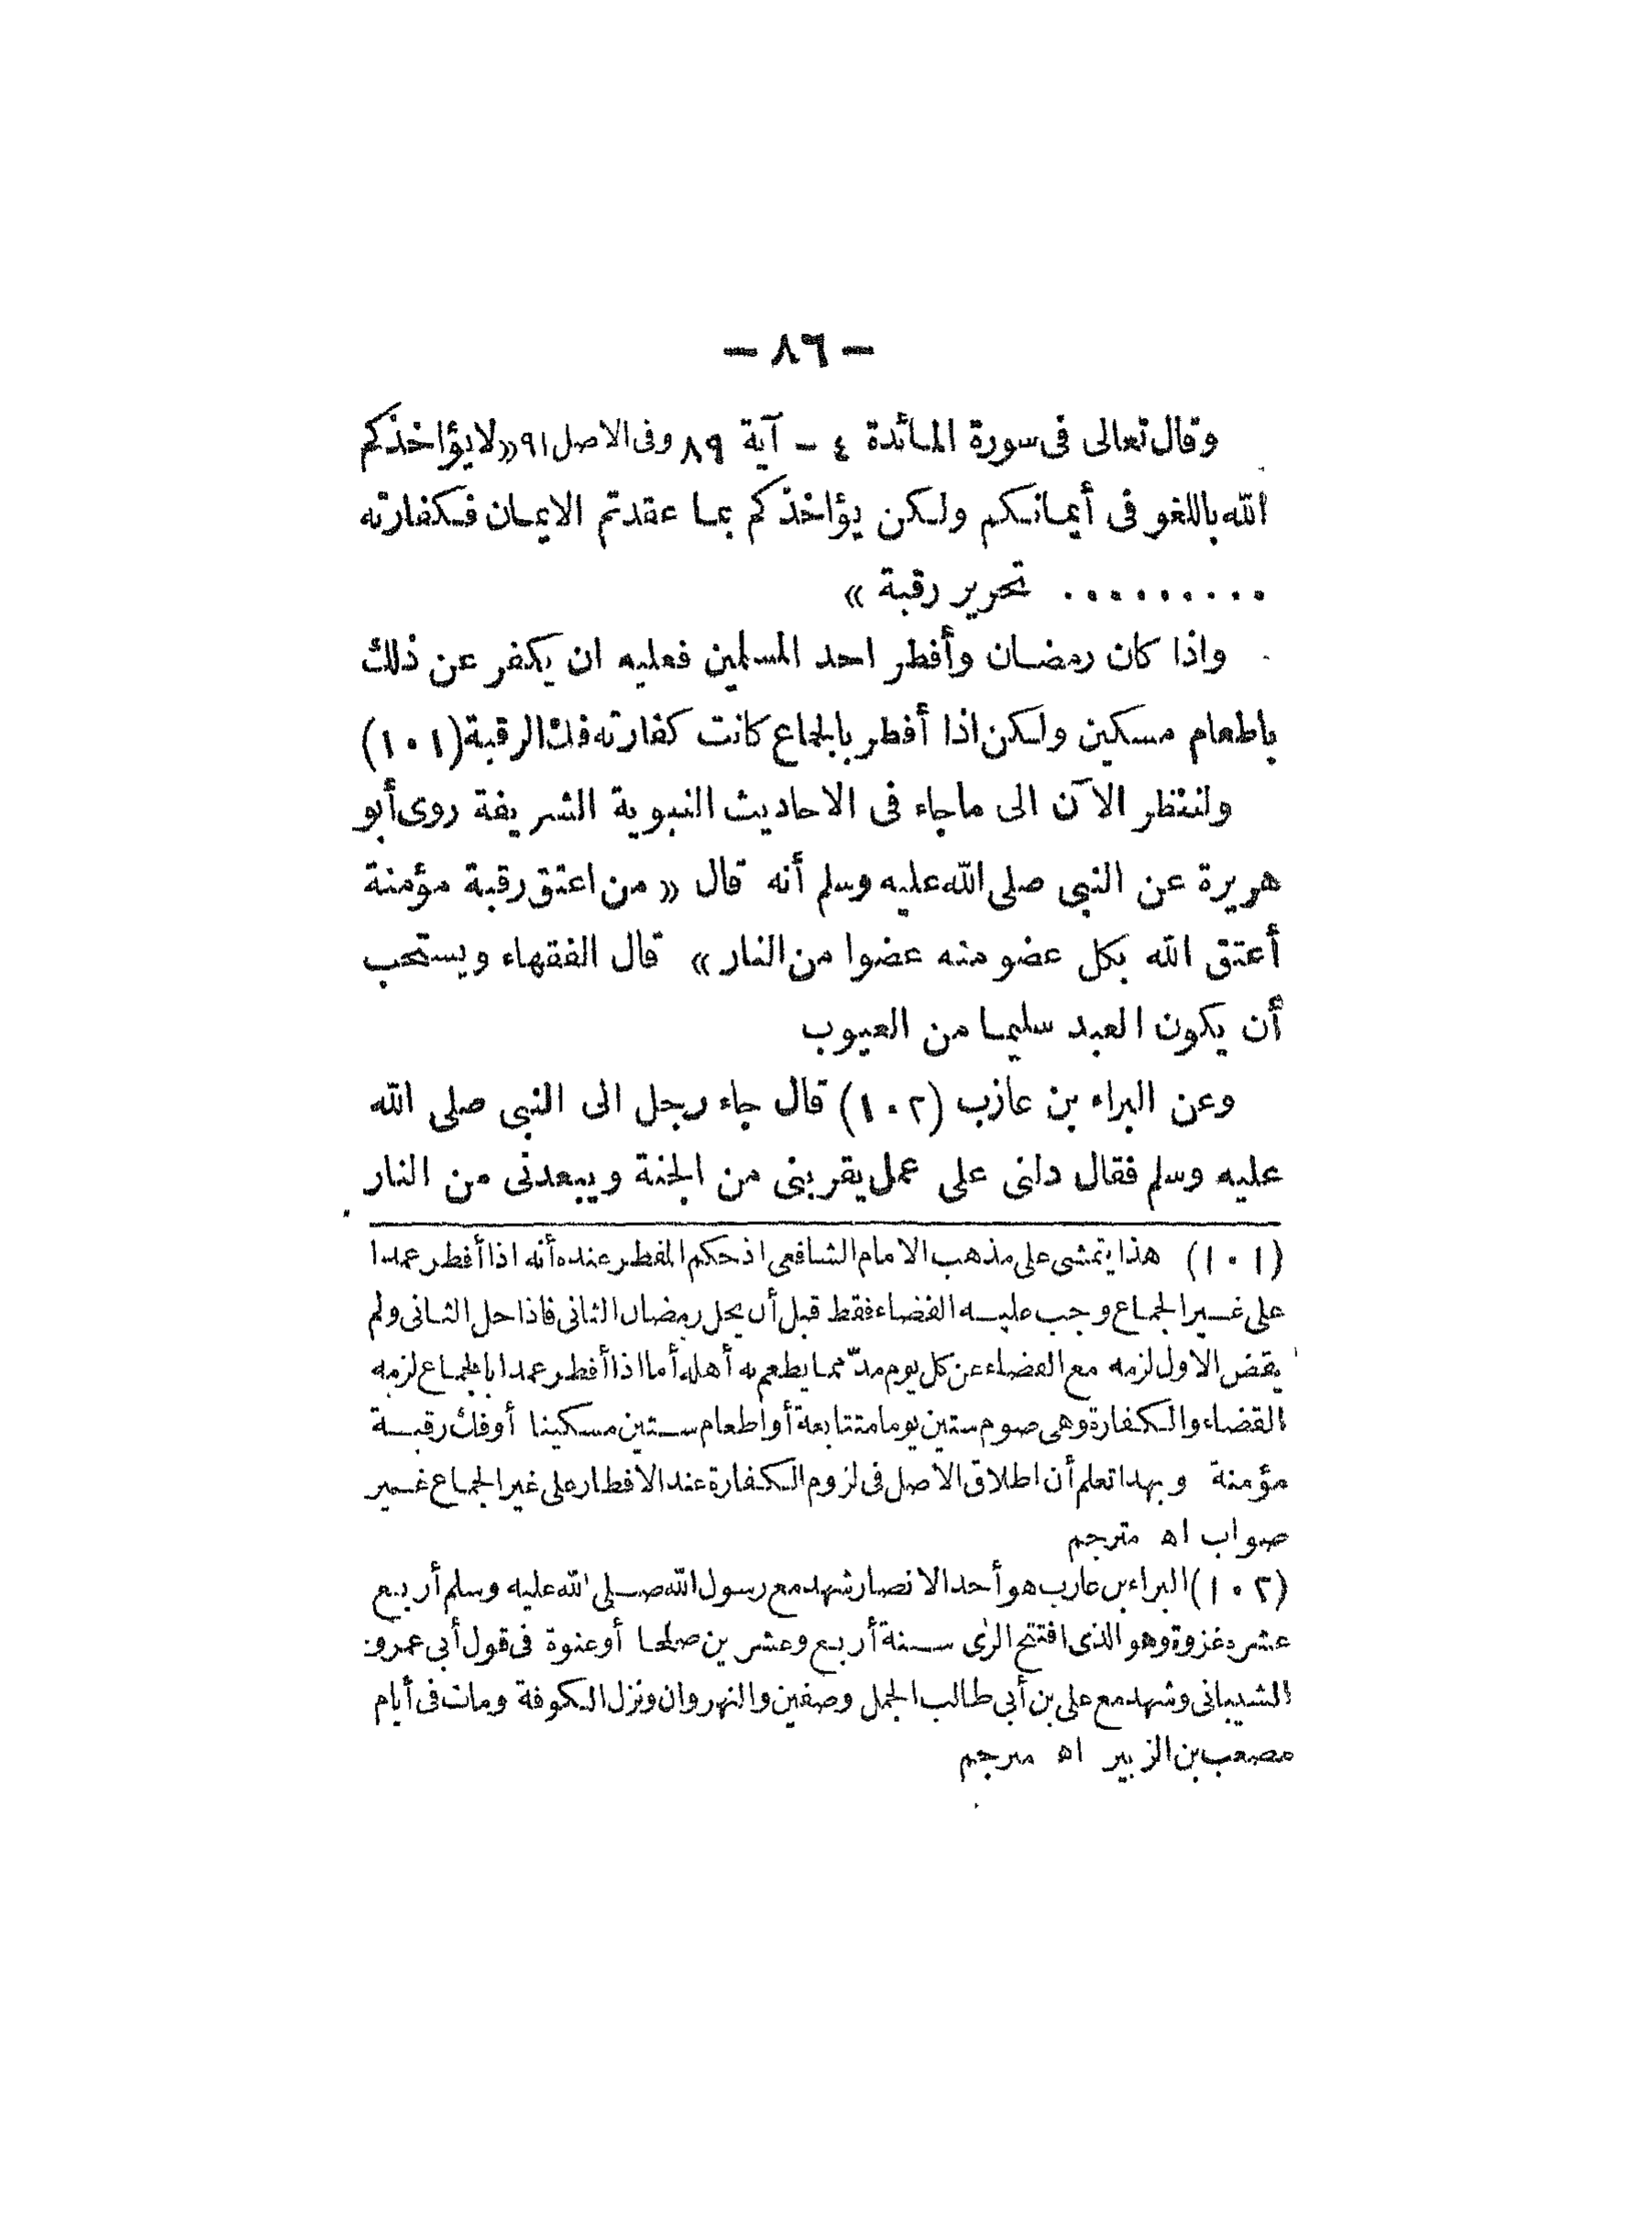 — ٨٦ —
وقال تعالى فى سورة المائدة ٤ - آية ٨٩ وفى الاصل ٩١ «لا يؤاخذكم
الله باللغو فى أيمانكم ولكن يؤاخذكم بما عقدتم الايمان فكفارته
......... تحرير رقبة »
واذا كان رمضان وأفطر احد المسلمين فعليه ان يكفر عن ذلك
باطعام مسكين ولكن اذا أفطر بالجماع كانت كفارته فك الرقبة (١٠١)
ولننظر الآن الى ماجاء فى الاحاديث النبوية الشريفة روى أبو
هريرة عن النبى صلى الله عليه وسلم أنه قال « من اعتق رقبة مؤمنة
أعتق الله بكل عضو منه عضوا من النار » قال الفقهاء ويستحب
أن يكون العبد سليما من العيوب
وعن البراء بن عازب (١٠٢) قال جاء رجل الى النبى صلى الله
عليه وسلم فقال دلنى على عمل يقربنى من الجنة ويبعدنى من النار
(١٠١) هذا يتمشى على مذهب الامام الشافعى اذ حكم المفطر عنده أنه اذا أفطر عمدا
على غير الجماع وجب عليه القضاء فقط قبل أن يحل رمضان الثانى فاذا حل الثانى ولم
يقض الاول لزمه مع القضاء عن كل يوم مدّ مما يطعم به أهله أما اذا أفطر عمدا بالجماع لزمه
القضاء والكفارة وهى صوم ستين يوما متتابعة أو اطعام ستين مسكينا أو فك رقبة
مؤمنة وبهذا تعلم أن اطلاق الاصل فى لزوم الكفارة عند الافطار على غير الجماع غير
صواب اه مترجم
(١٠٢) البراء بن عازب هو أحد الانصار شهد مع رسول الله صلى الله عليه وسلم أربع
عشره غزوة وهو الذى افتتح الرى سنة أربع وعشرين صلحا أو عنوة فى قول أبى عمرو
الشيبانى وشهد مع على بن أبى طالب الجمل وصفين والنهروان ونزل الكوفة ومات فى أيام
مصعب بن الزبير اه مترجم